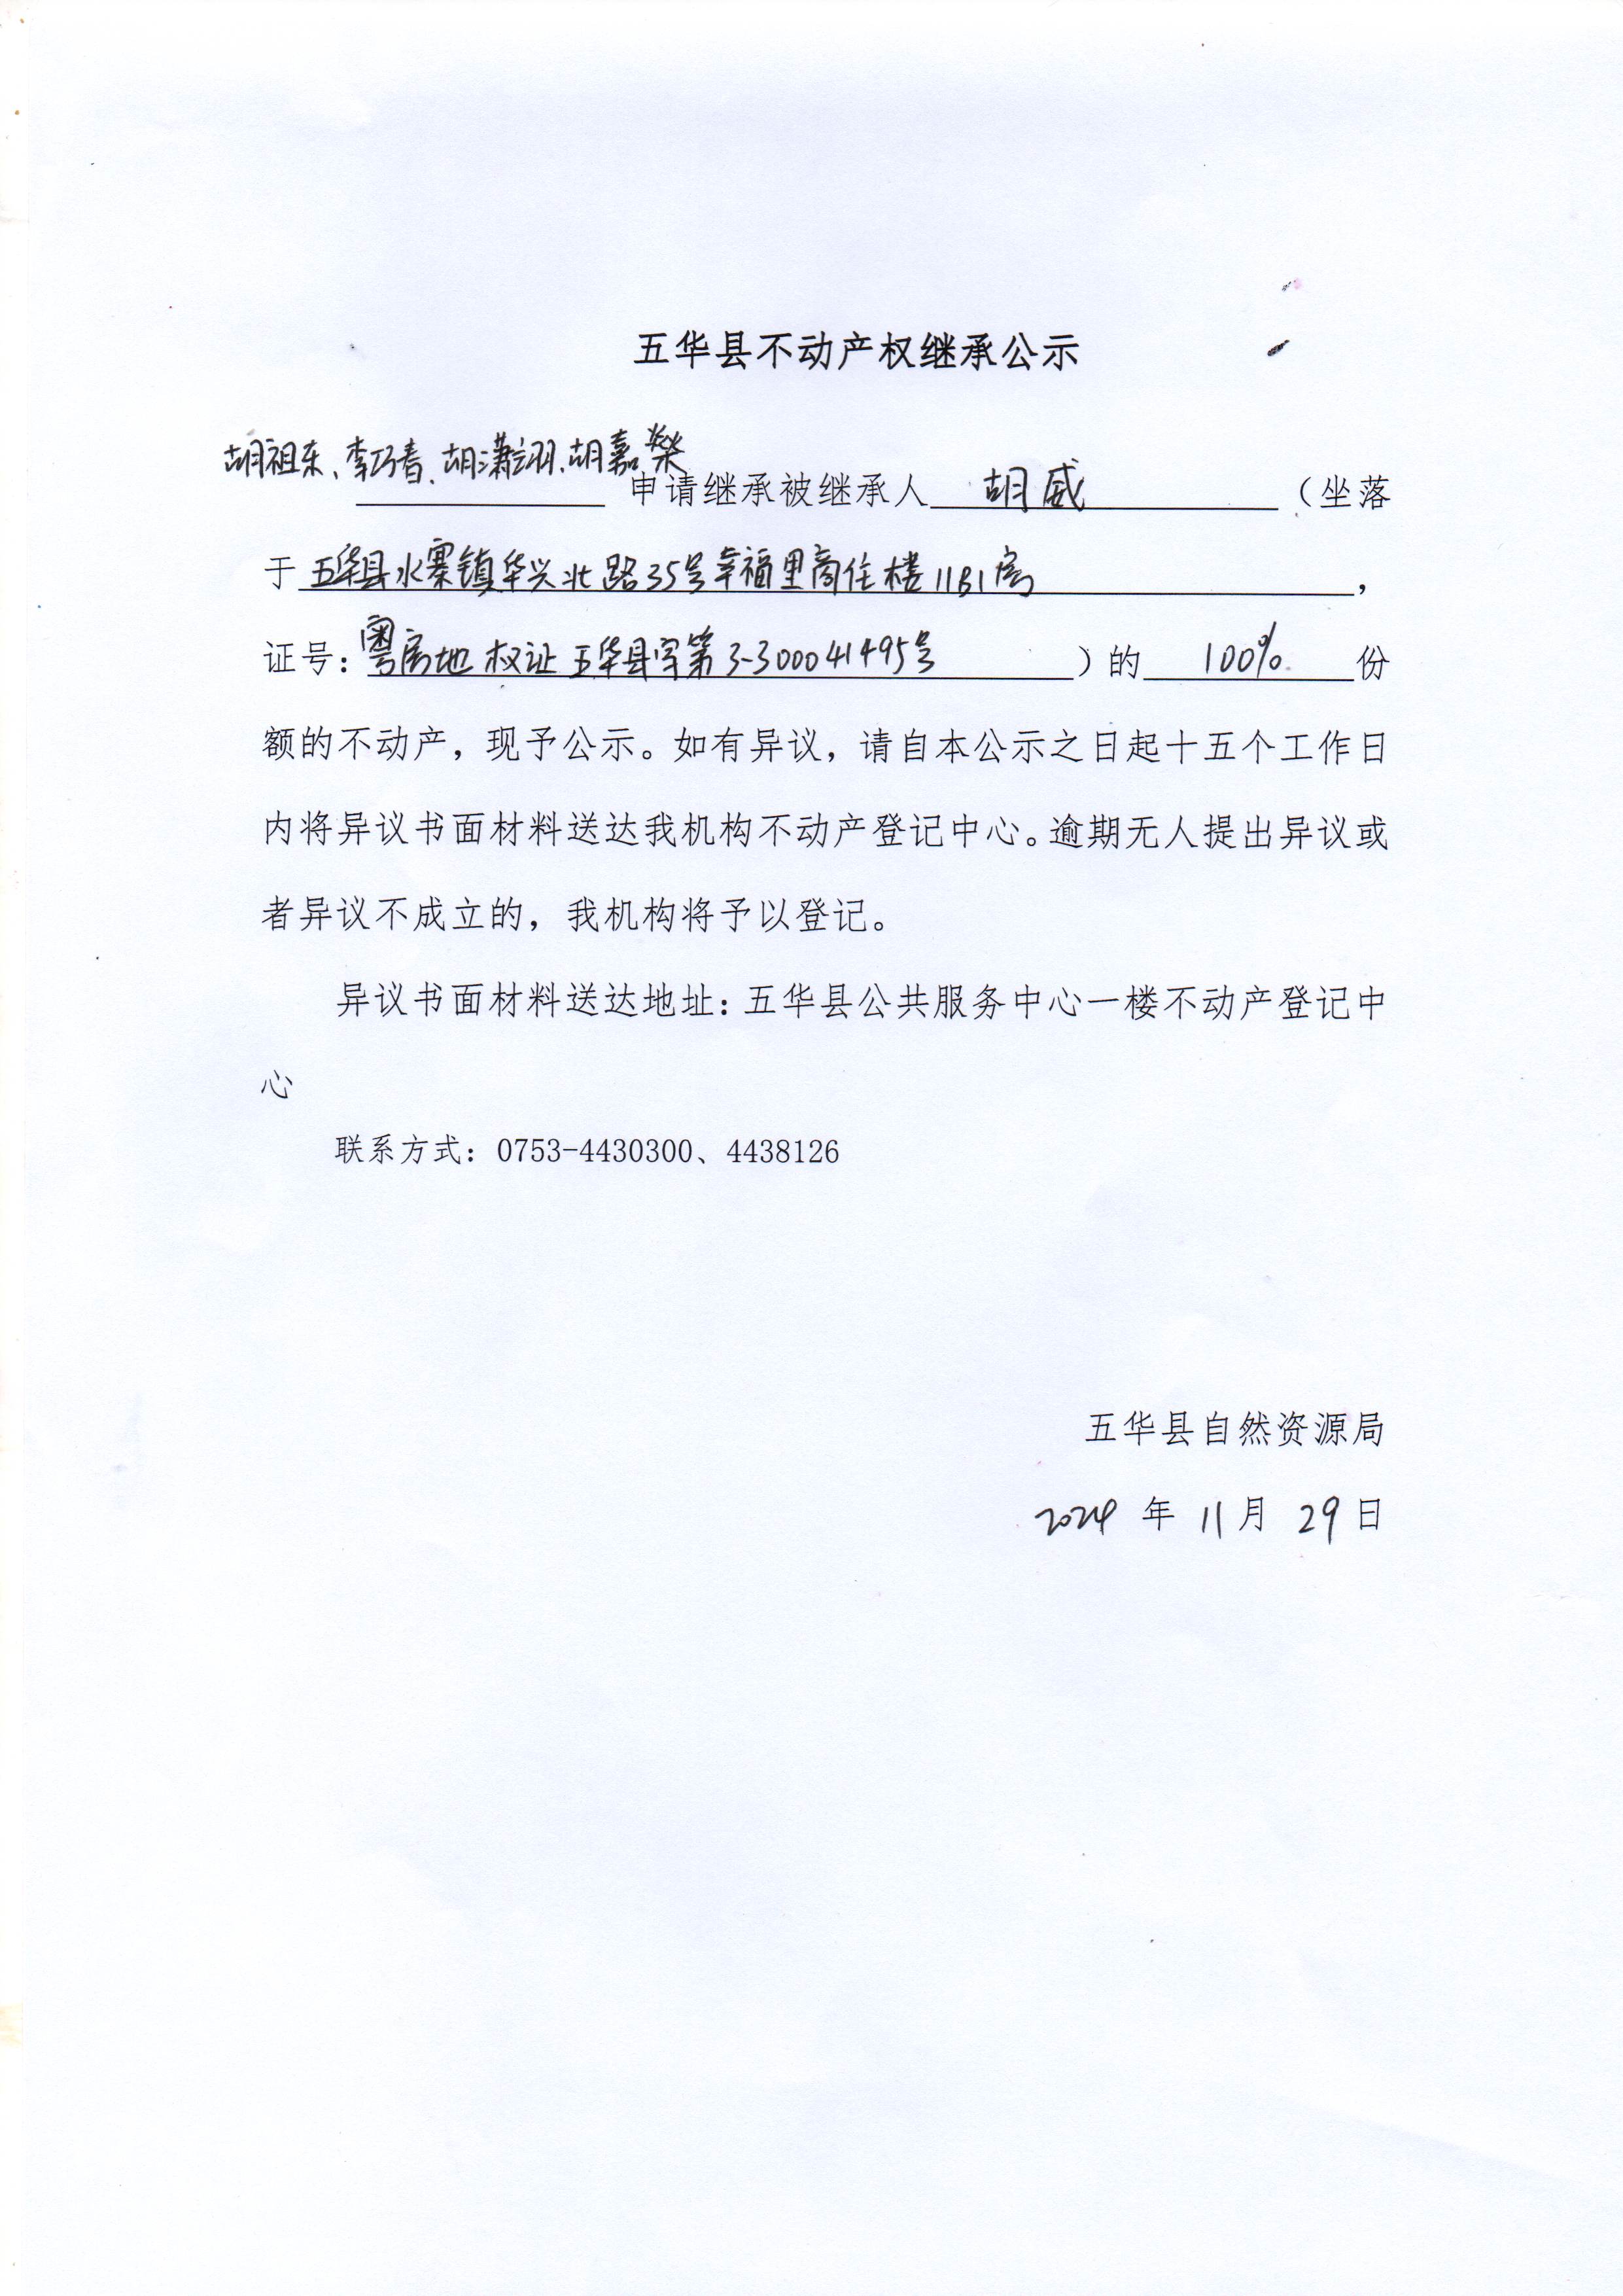 五华县不动产权继承公示
胡祖东、李巧春、胡潇翊、胡嘉燊
申请继承被继承人 胡威 （坐落
于 五华县水寨镇华兴北路35号幸福里商住楼11B1房 ，
证号：粤房地权证五华县字第3-300041495号 ）的 100% 份
额的不动产，现予公示。如有异议，请自本公示之日起十五个工作日
内将异议书面材料送达我机构不动产登记中心。逾期无人提出异议或
者异议不成立的，我机构将予以登记。
异议书面材料送达地址：五华县公共服务中心一楼不动产登记中
心
联系方式：0753-4430300、4438126
五华县自然资源局
2024 年 11 月 29 日